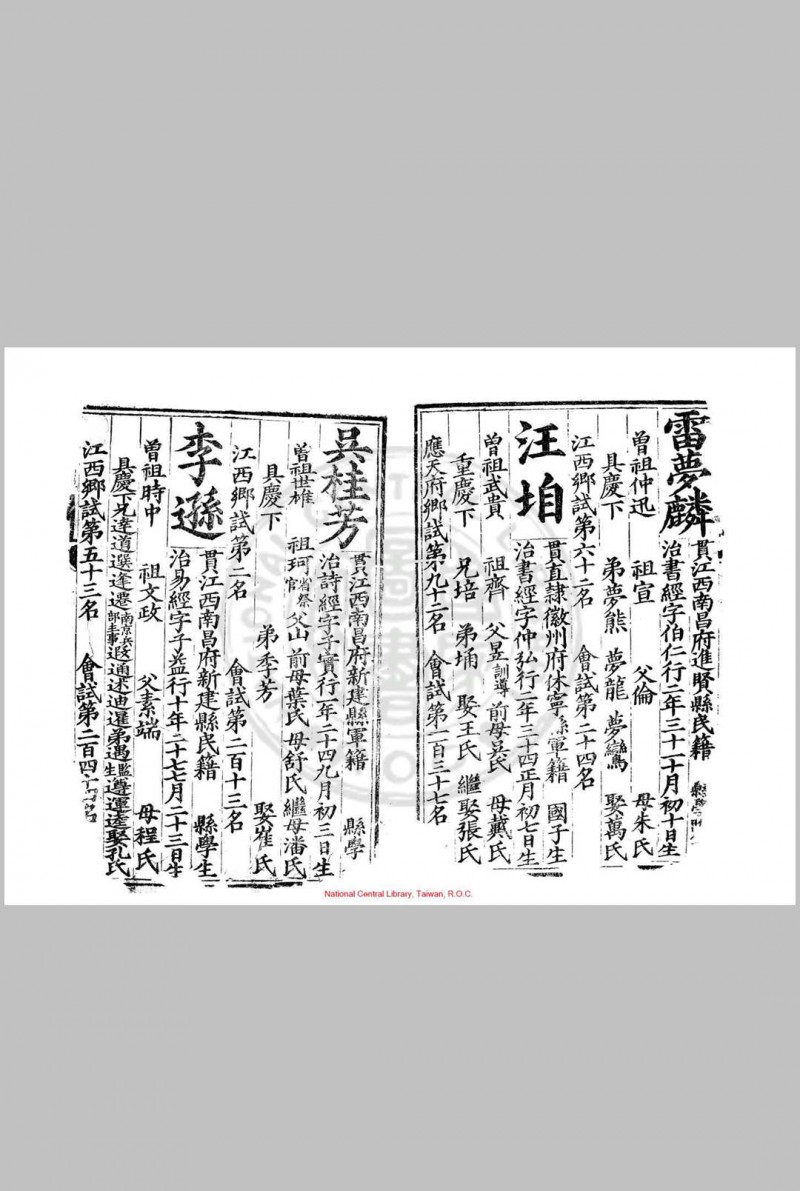 雷夢麟
貫江西南昌府進賢縣民籍
治書經字伯仁行二年三十一十月初十日生
曾祖仲迅 祖宣 父倫 母朱氏
具慶下 弟夢熊 夢龍 夢鸞 娶萬氏
江西鄉試第六十二名 會試第二十四名
汪垍
貫直隷徽州府休寧縣軍籍 國子生
治書經字仲弘行二年三十四正月初七日生
曾祖武貴 祖齊 父昱訓導 前母吳氏 母戴氏
重慶下 兄培 弟埇 娶王氏 繼娶張氏
應天府鄉試第九十二名 會試第一百三十七名
吳桂芳
貫江西南昌府新建縣軍籍 縣學
治詩經字子實行一年二十四九月初三日生
曾祖世雄 祖珂省祭官 父山 前母葉氏 母舒氏 繼母潘氏
具慶下 弟季芳 娶崔氏
江西鄉試第二名 會試第二百十三名
李遜
貫江西南昌府新建縣民籍 縣學生
治易經字子益行十年二十七七月二十三日生
曾祖時中 祖文政 父素端 母程氏
具慶下兄達道選逢遷南京兵部主事遐通述迪暹弟遇監生遵運逵娶孔氏
江西鄉試第五十三名 會試第二百四十
National Central Library, Taiwan, R.O.C.